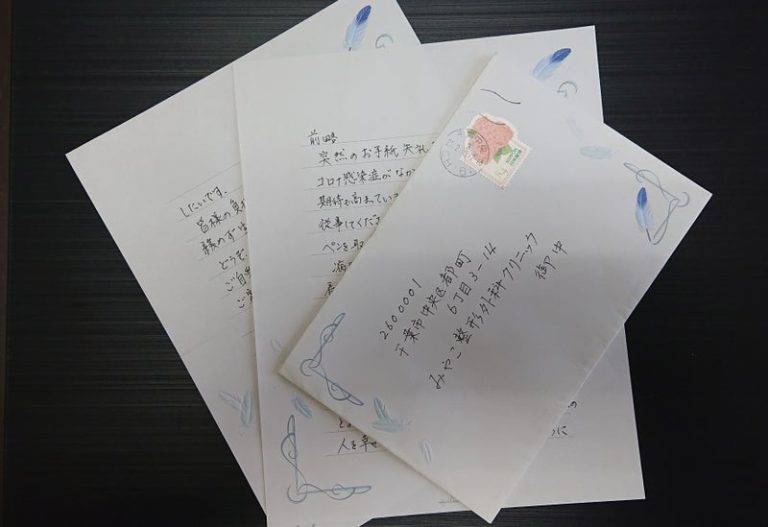 2600001
千葉市中央区都町
6丁目3-14
みやこ整形外科クリニック
御中
前略
突然のお手紙失礼
コロナ感染症がなか
期待も高まっていま
従事してくださ
ペンを取
人を幸せ
したいです。
皆様の負
どうぞ
ご自